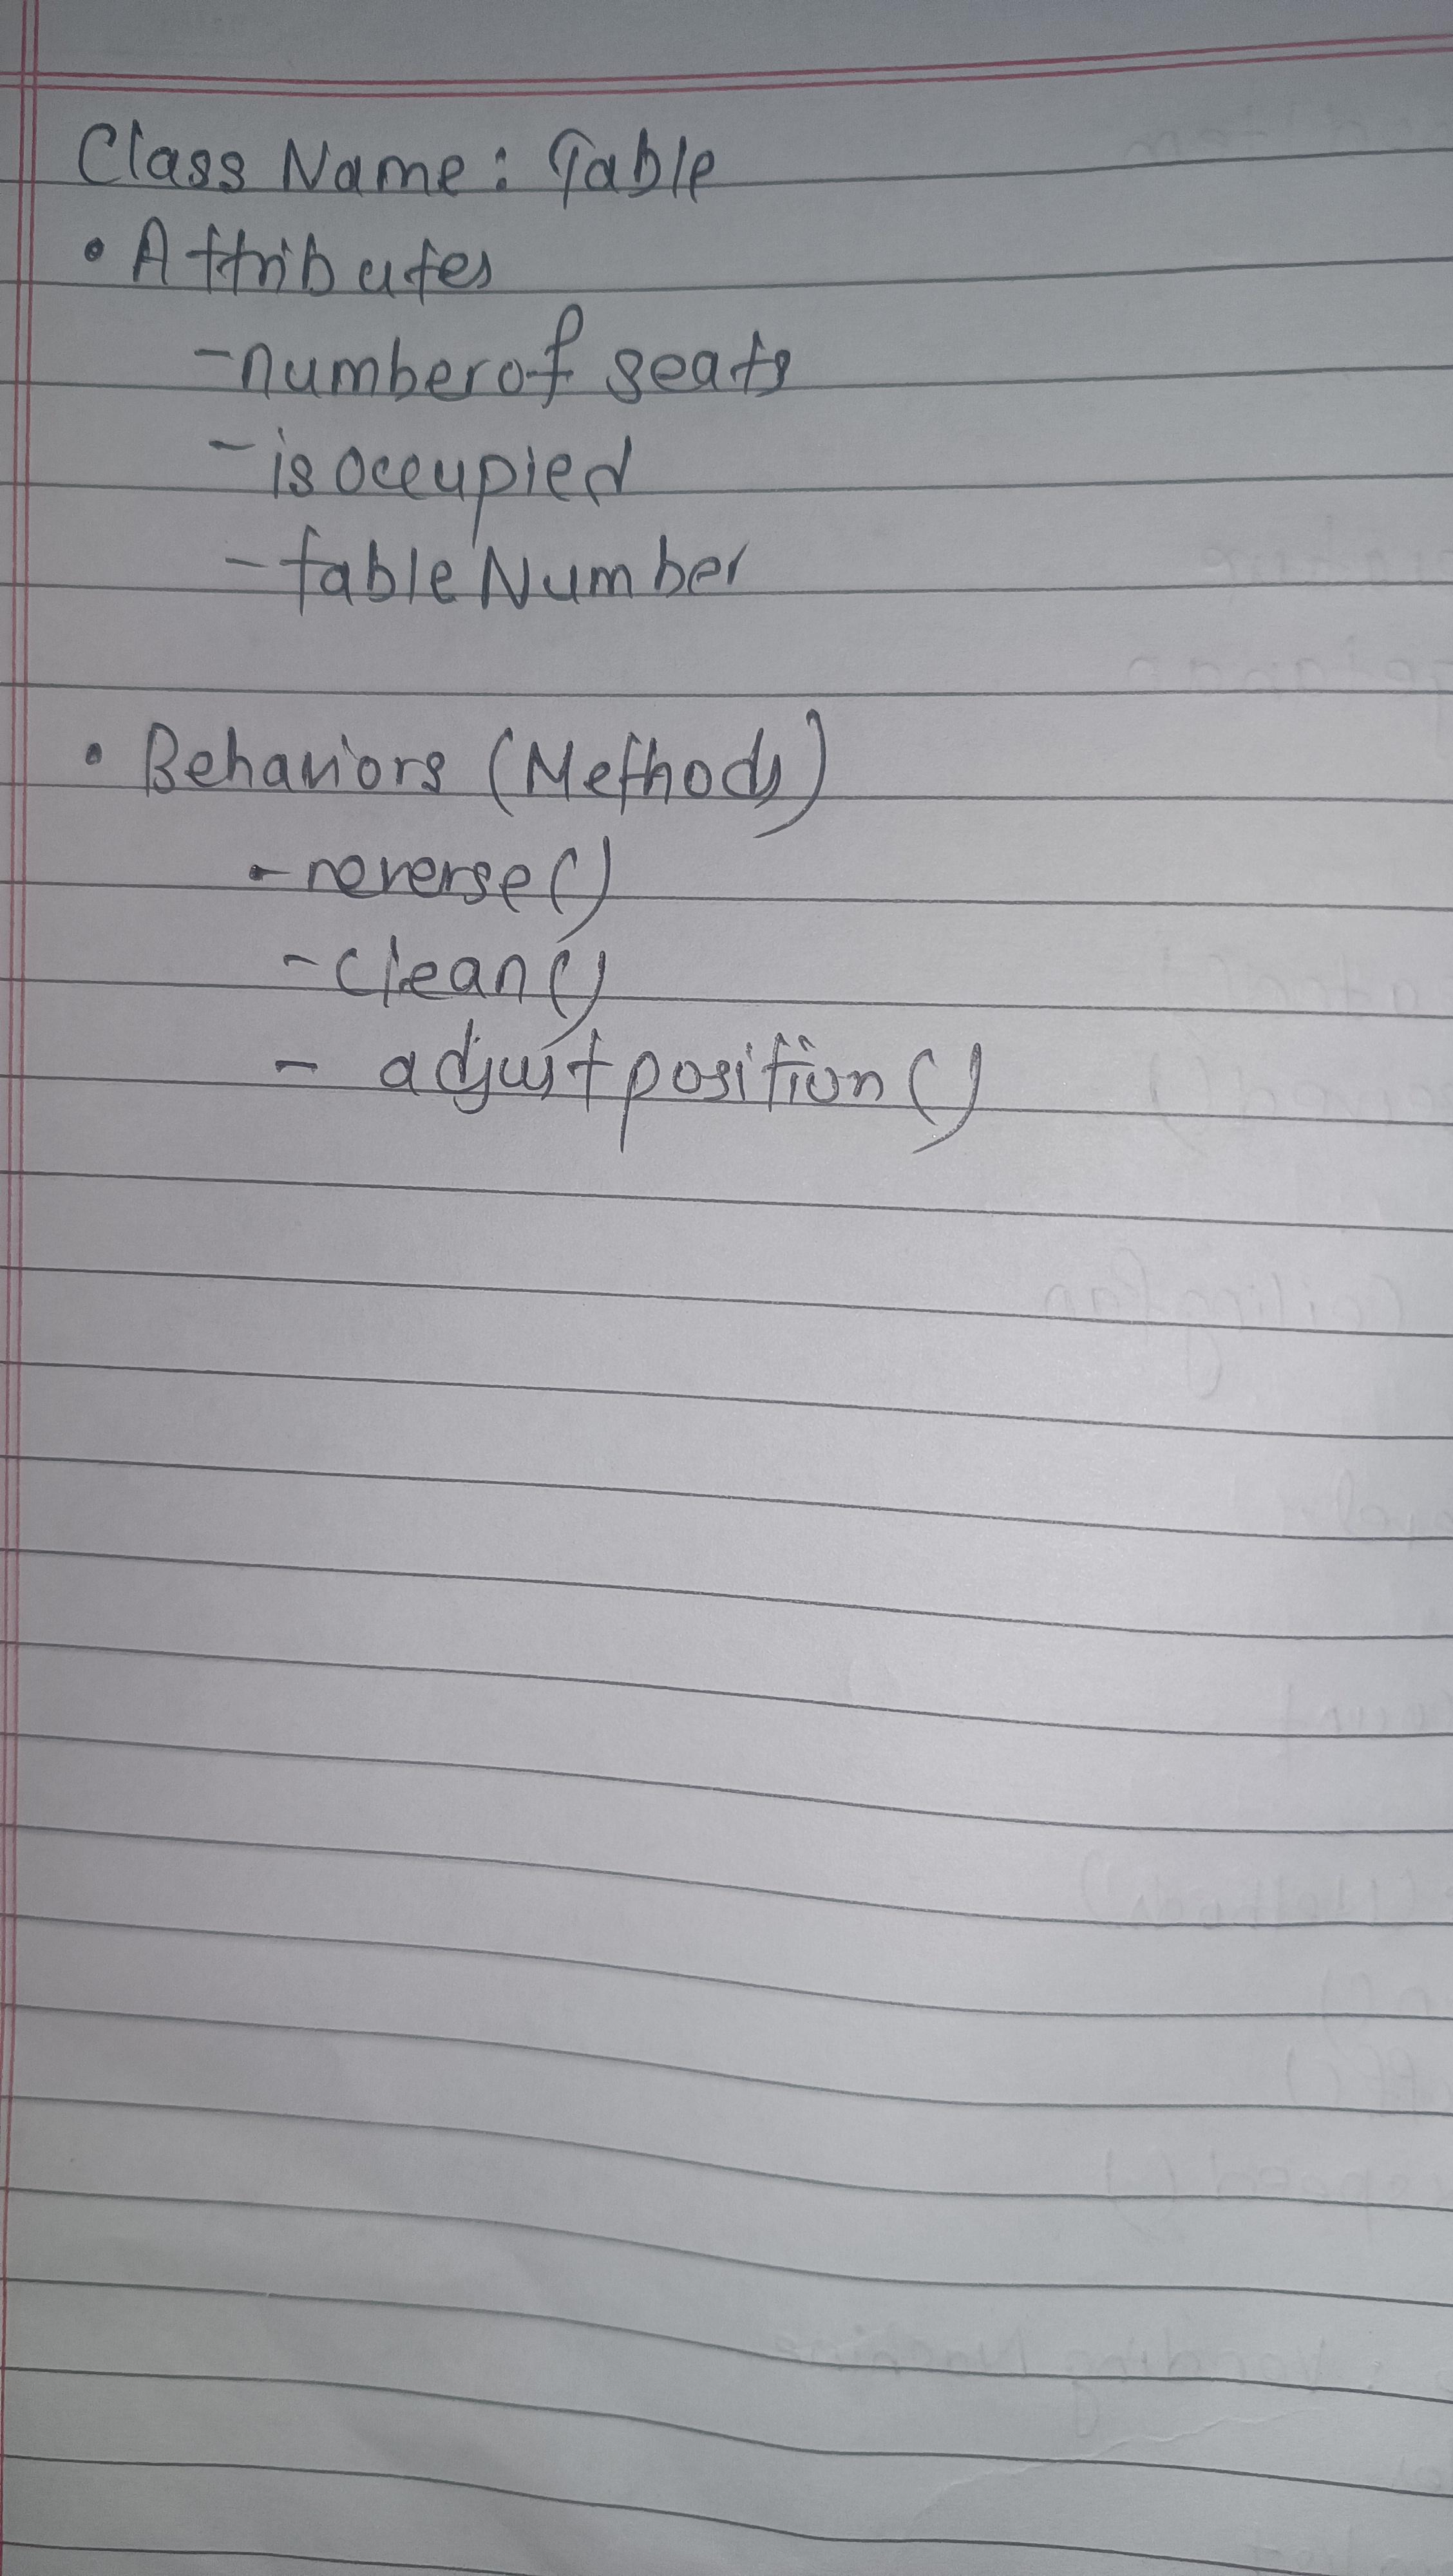 Class Name: Table
• Attributes
- numberof seats
- is occupied
- tableNumber
• Behaviors (Methods)
- reverse()
- clean()
- adjustposition()